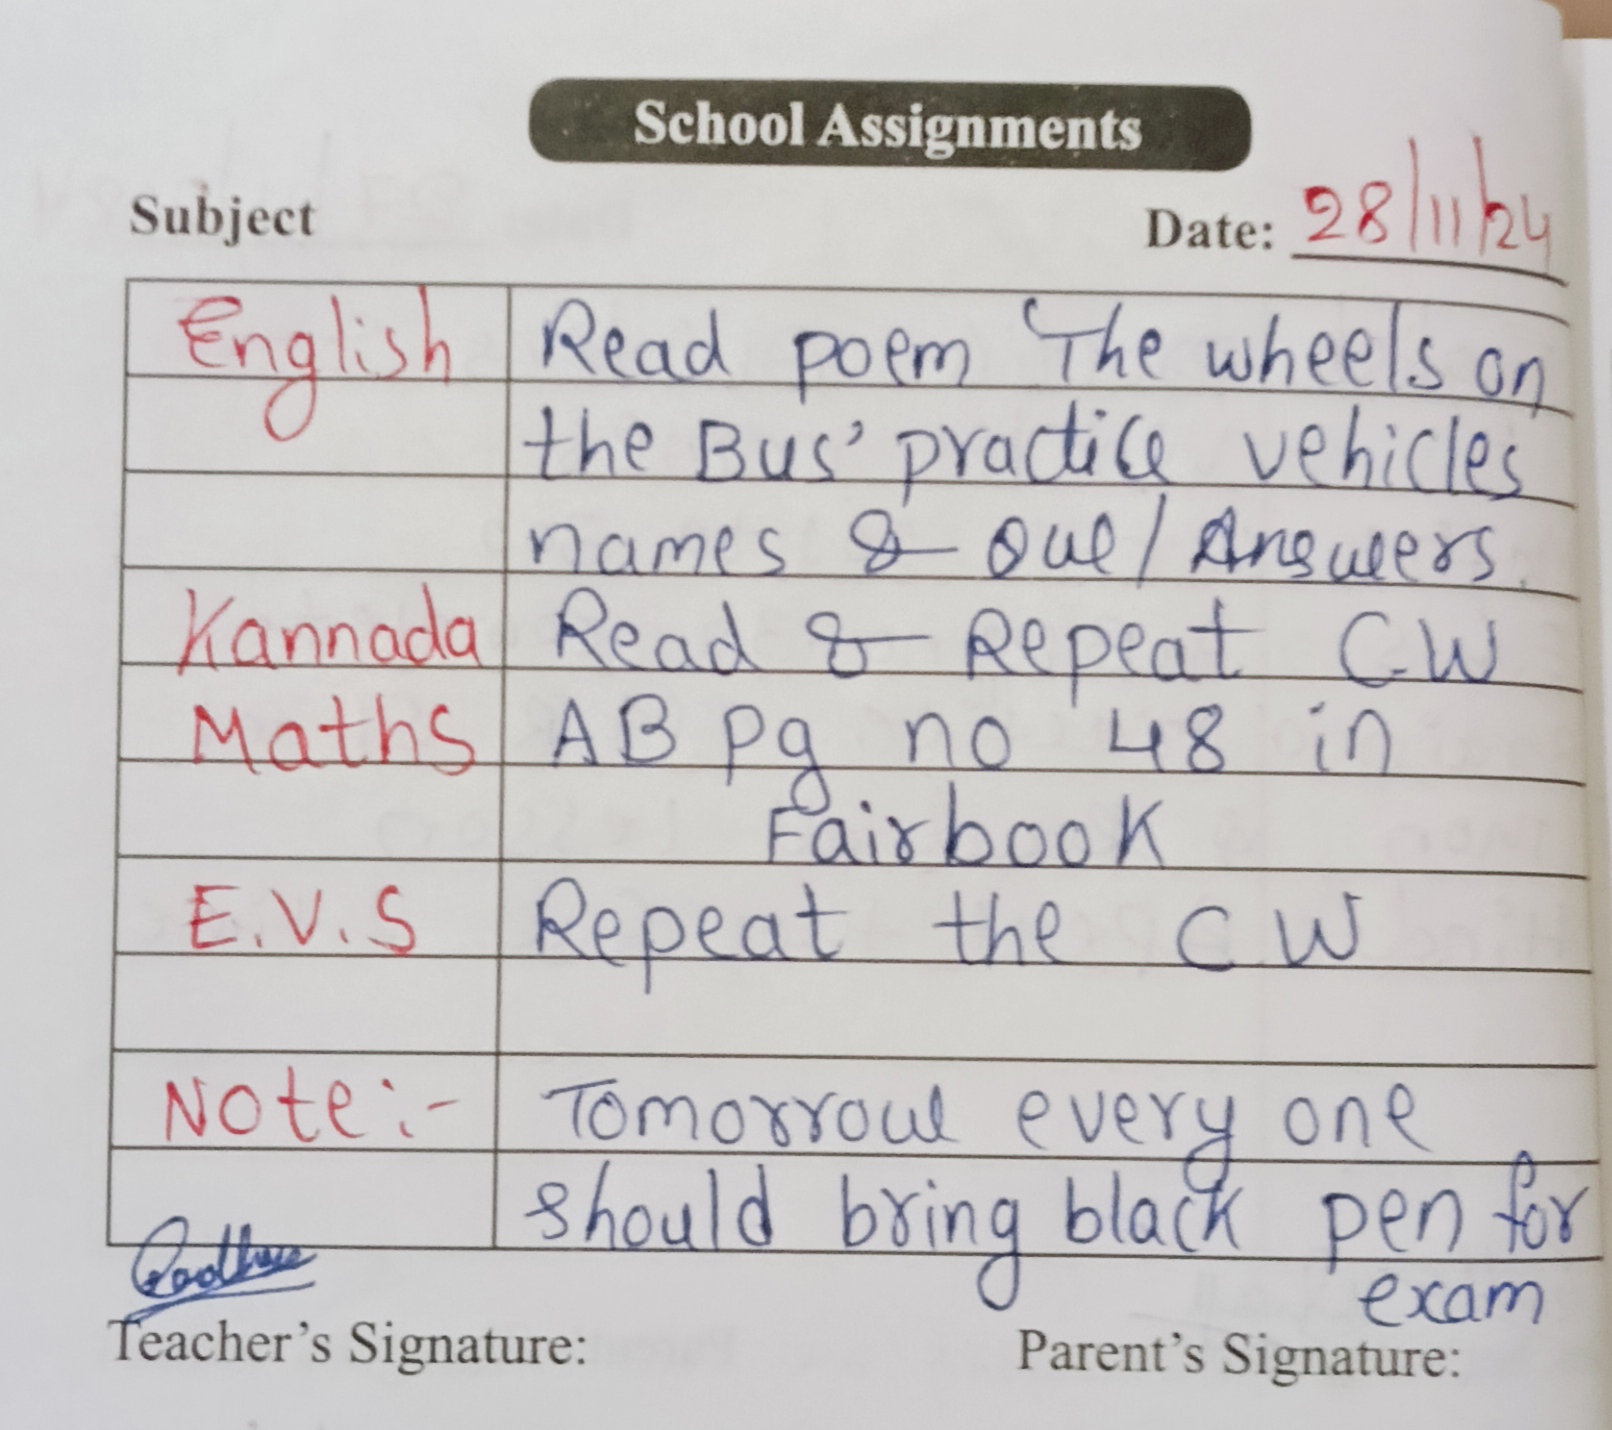 School Assignments
Subject Date: 28/11/24
English Read poem 'The wheels on
the Bus' practice vehicles
names & Que/Answers.
Kannada Read & Repeat C.W
Maths AB pg no 48 in
Fairbook
E.V.S Repeat the CW
Note:- Tomorrow every one
should bring black pen for
exam
Teacher's Signature: Parent's Signature: